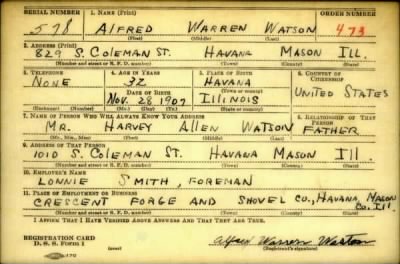 SERIAL NUMBER 1. NAME (Print) ORDER NUMBER
578 ALFRED WARREN WATSON 473
(First) (Middle) (Last)
2. ADDRESS (Print)
829 S. COLEMAN ST. HAVANA MASON ILL.
(Number and street or R. F. D. number) (Town) (County) (State)
3. TELEPHONE 4. AGE IN YEARS 5. PLACE OF BIRTH 6. COUNTRY OF CITIZENSHIP
NONE 32 HAVANA
DATE OF BIRTH (Town or county) UNITED STATES
NOV. 28 1907 ILLINOIS
(Exchange) (Number) (Mo.) (Day) (Yr.) (State or country)
7. NAME OF PERSON WHO WILL ALWAYS KNOW YOUR ADDRESS 8. RELATIONSHIP OF THAT PERSON
MR. HARVEY ALLEN WATSON FATHER
(Mr., Mrs., Miss) (First) (Middle) (Last)
9. ADDRESS OF THAT PERSON
1010 S. COLEMAN ST. HAVANA MASON Ill.
(Number and street or R. F. D. number) (Town) (County) (State)
10. EMPLOYER'S NAME
LONNIE SMITH, FOREMAN
11. PLACE OF EMPLOYMENT OR BUSINESS
CRESCENT FORGE AND SHOVEL CO., HAVANA, MASON CO. Ill.
(Number and street or R. F. D. number) (Town) (County) (State)
I AFFIRM THAT I HAVE VERIFIED ABOVE ANSWERS AND THAT THEY ARE TRUE.
REGISTRATION CARD
D. S. S. Form 1 (over) Alfred Warren Watson
(Registrant's signature)